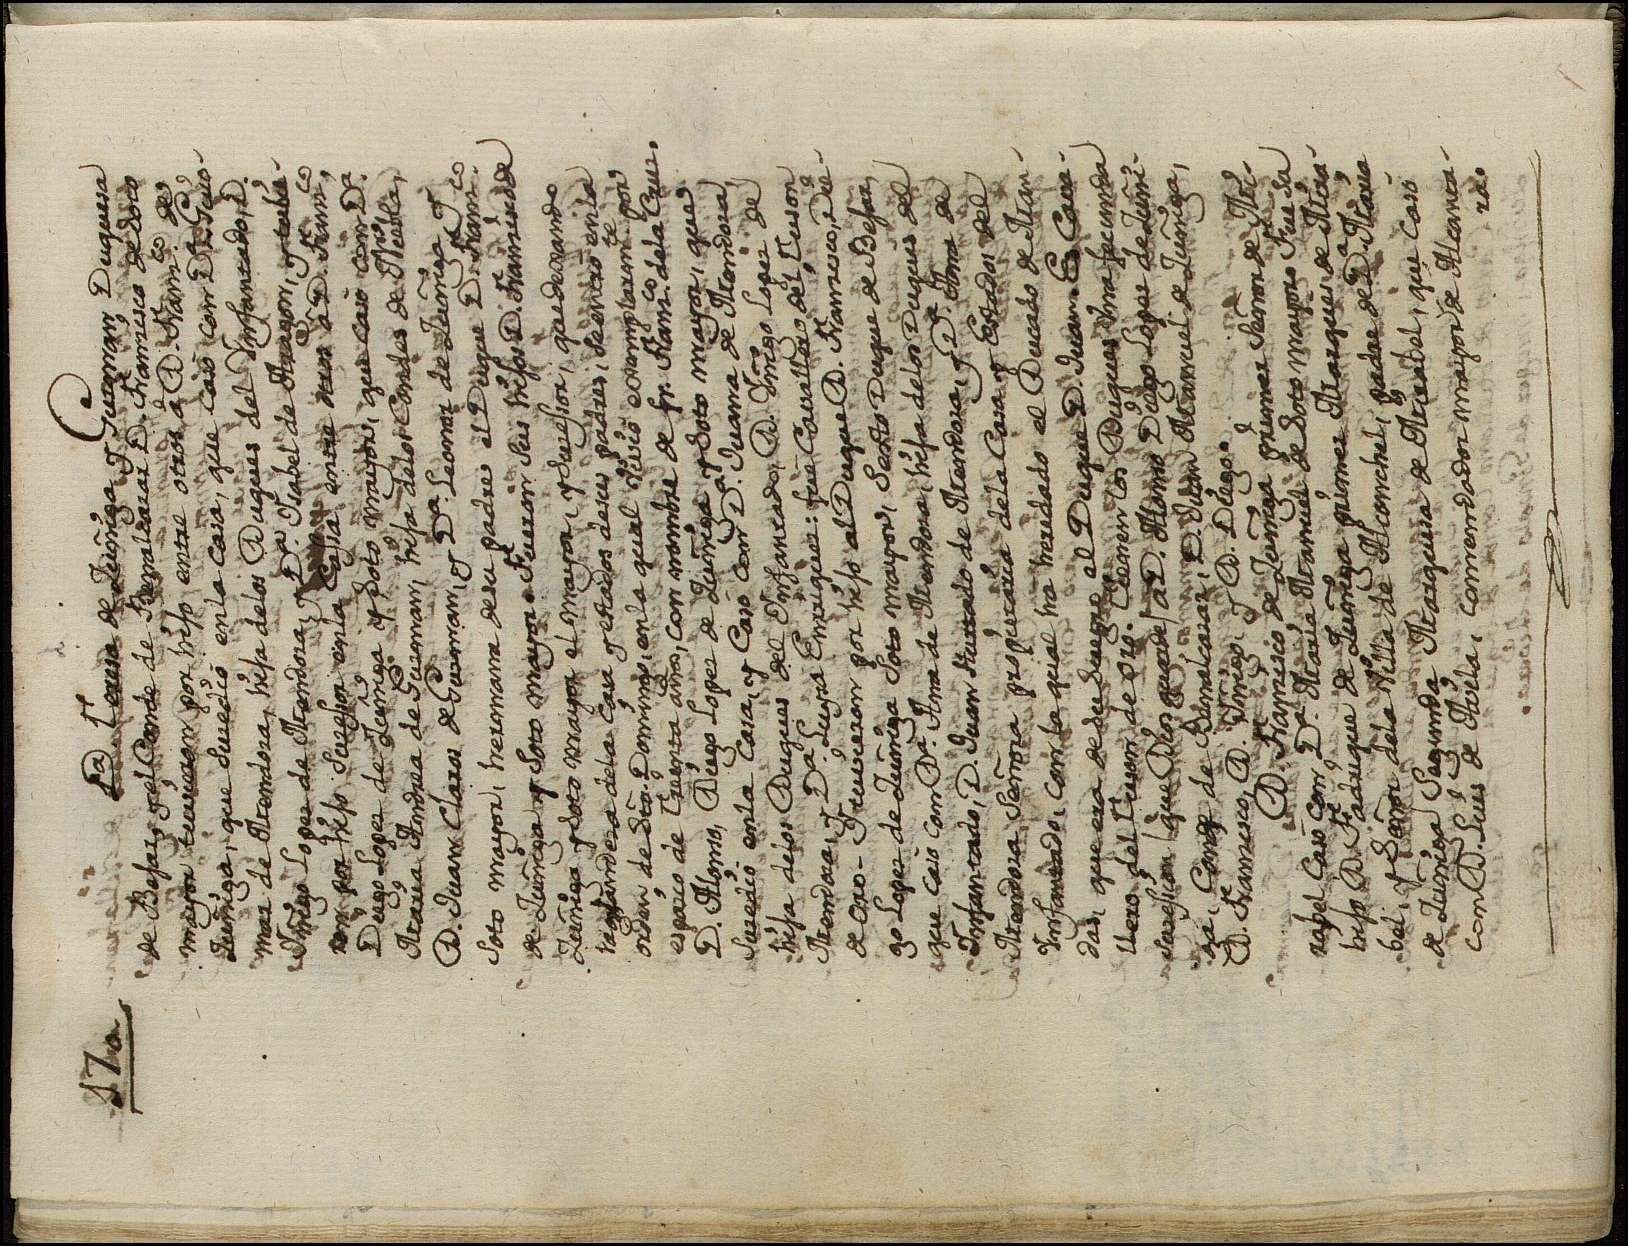 17.
Da. Teresa de Zuñiga, y Guzman Duquesa
de Bejar, y el Conde de Benalcazar D. Francisco de Soto
mayor tuvieron por hijo entre otros â D. Franco. de
Zuñiga, que Sucediò en la Casa, que Casò con Da. Guio-
mar de Mendoza, hija delos Duques del Infantado, D.
Iñigo Lopez de Mendoza, y Da. Isabel de Aragon, y tubie-
ron por hijo Suçesor enla Casa entre otros â D. Franco.
Diego Lopez de Zuñiga y Soto mayor, que Casò con Da.
Maria Andrea de Guzman, hija delos Condes de Niebla,
D. Juan Claros de Guzman, y Da. Leonor de Zuñiga y
Soto mayor, hermana de su padre el Duque D. Franco.
de Zuñiga y Soto mayor. Fueron sus hijos D. Francisco de
Zuñiga y Soto mayor el mayor, y Suçesor, que dexando
la grandeza dela Casa y estados de sus padres, se entrò enla
orden de Sto. Domingo, en la qual viviò exemplarmte. por
espacio de treinta años, con nombre de fr. Franco. dela Cruz.
D. Alonso, Diego Lopez de Zuñiga y Soto mayor, que
Sucediò enla Casa, y Casò con Da. Juana de Mendoza,
hija delos Duques del Infantado, D. Iñigo Lopez de
Mendoza, y Da. Luysa Enriquez: fue Cavallero del Tuson
de Oro. Tuvieron por hijo al Duque D. Francisco, Die-
go Lopez de Zuñiga Soto mayor, Sexto Duque de Bejar,
que Casò con Da. Ana de Mendoza, hija delos Duques del
Infantado, D. Juan Hurtado de Mendoza, y Da. Ana de
Mendoza Señora propietaria dela Casa y Estados del
Infantado, con la qual ha heredado el Ducado de Man-
das, que era de su Suegro el Duque D. Juan. Es Cava-
llero del Tuson de oro. Tienen los Duques una fecunda
Suçesion (que Dios guarde) a D. Alonso Diego Lopez de Zuñi-
ga, Conde de Benalcazar, D. Juan Manuel de Zuñiga,
D. Francisco, D. Iñigo, y D. Diego.
D. Francisco de Zuñiga primer Señor de Mi-
rabel Casò con Da. Maria Manuel de Soto mayor Fue Su
hijo D. Fadrique de Zuñiga primer Marques de Mira-
bel, y Señor dela Villa de Alconchel, padre de Da. Maria
de Zuñiga Segunda Marquesa de Mirabel, que Casò
con D. Luis de Avila, Comendador mayor de Alcanta-
ra.